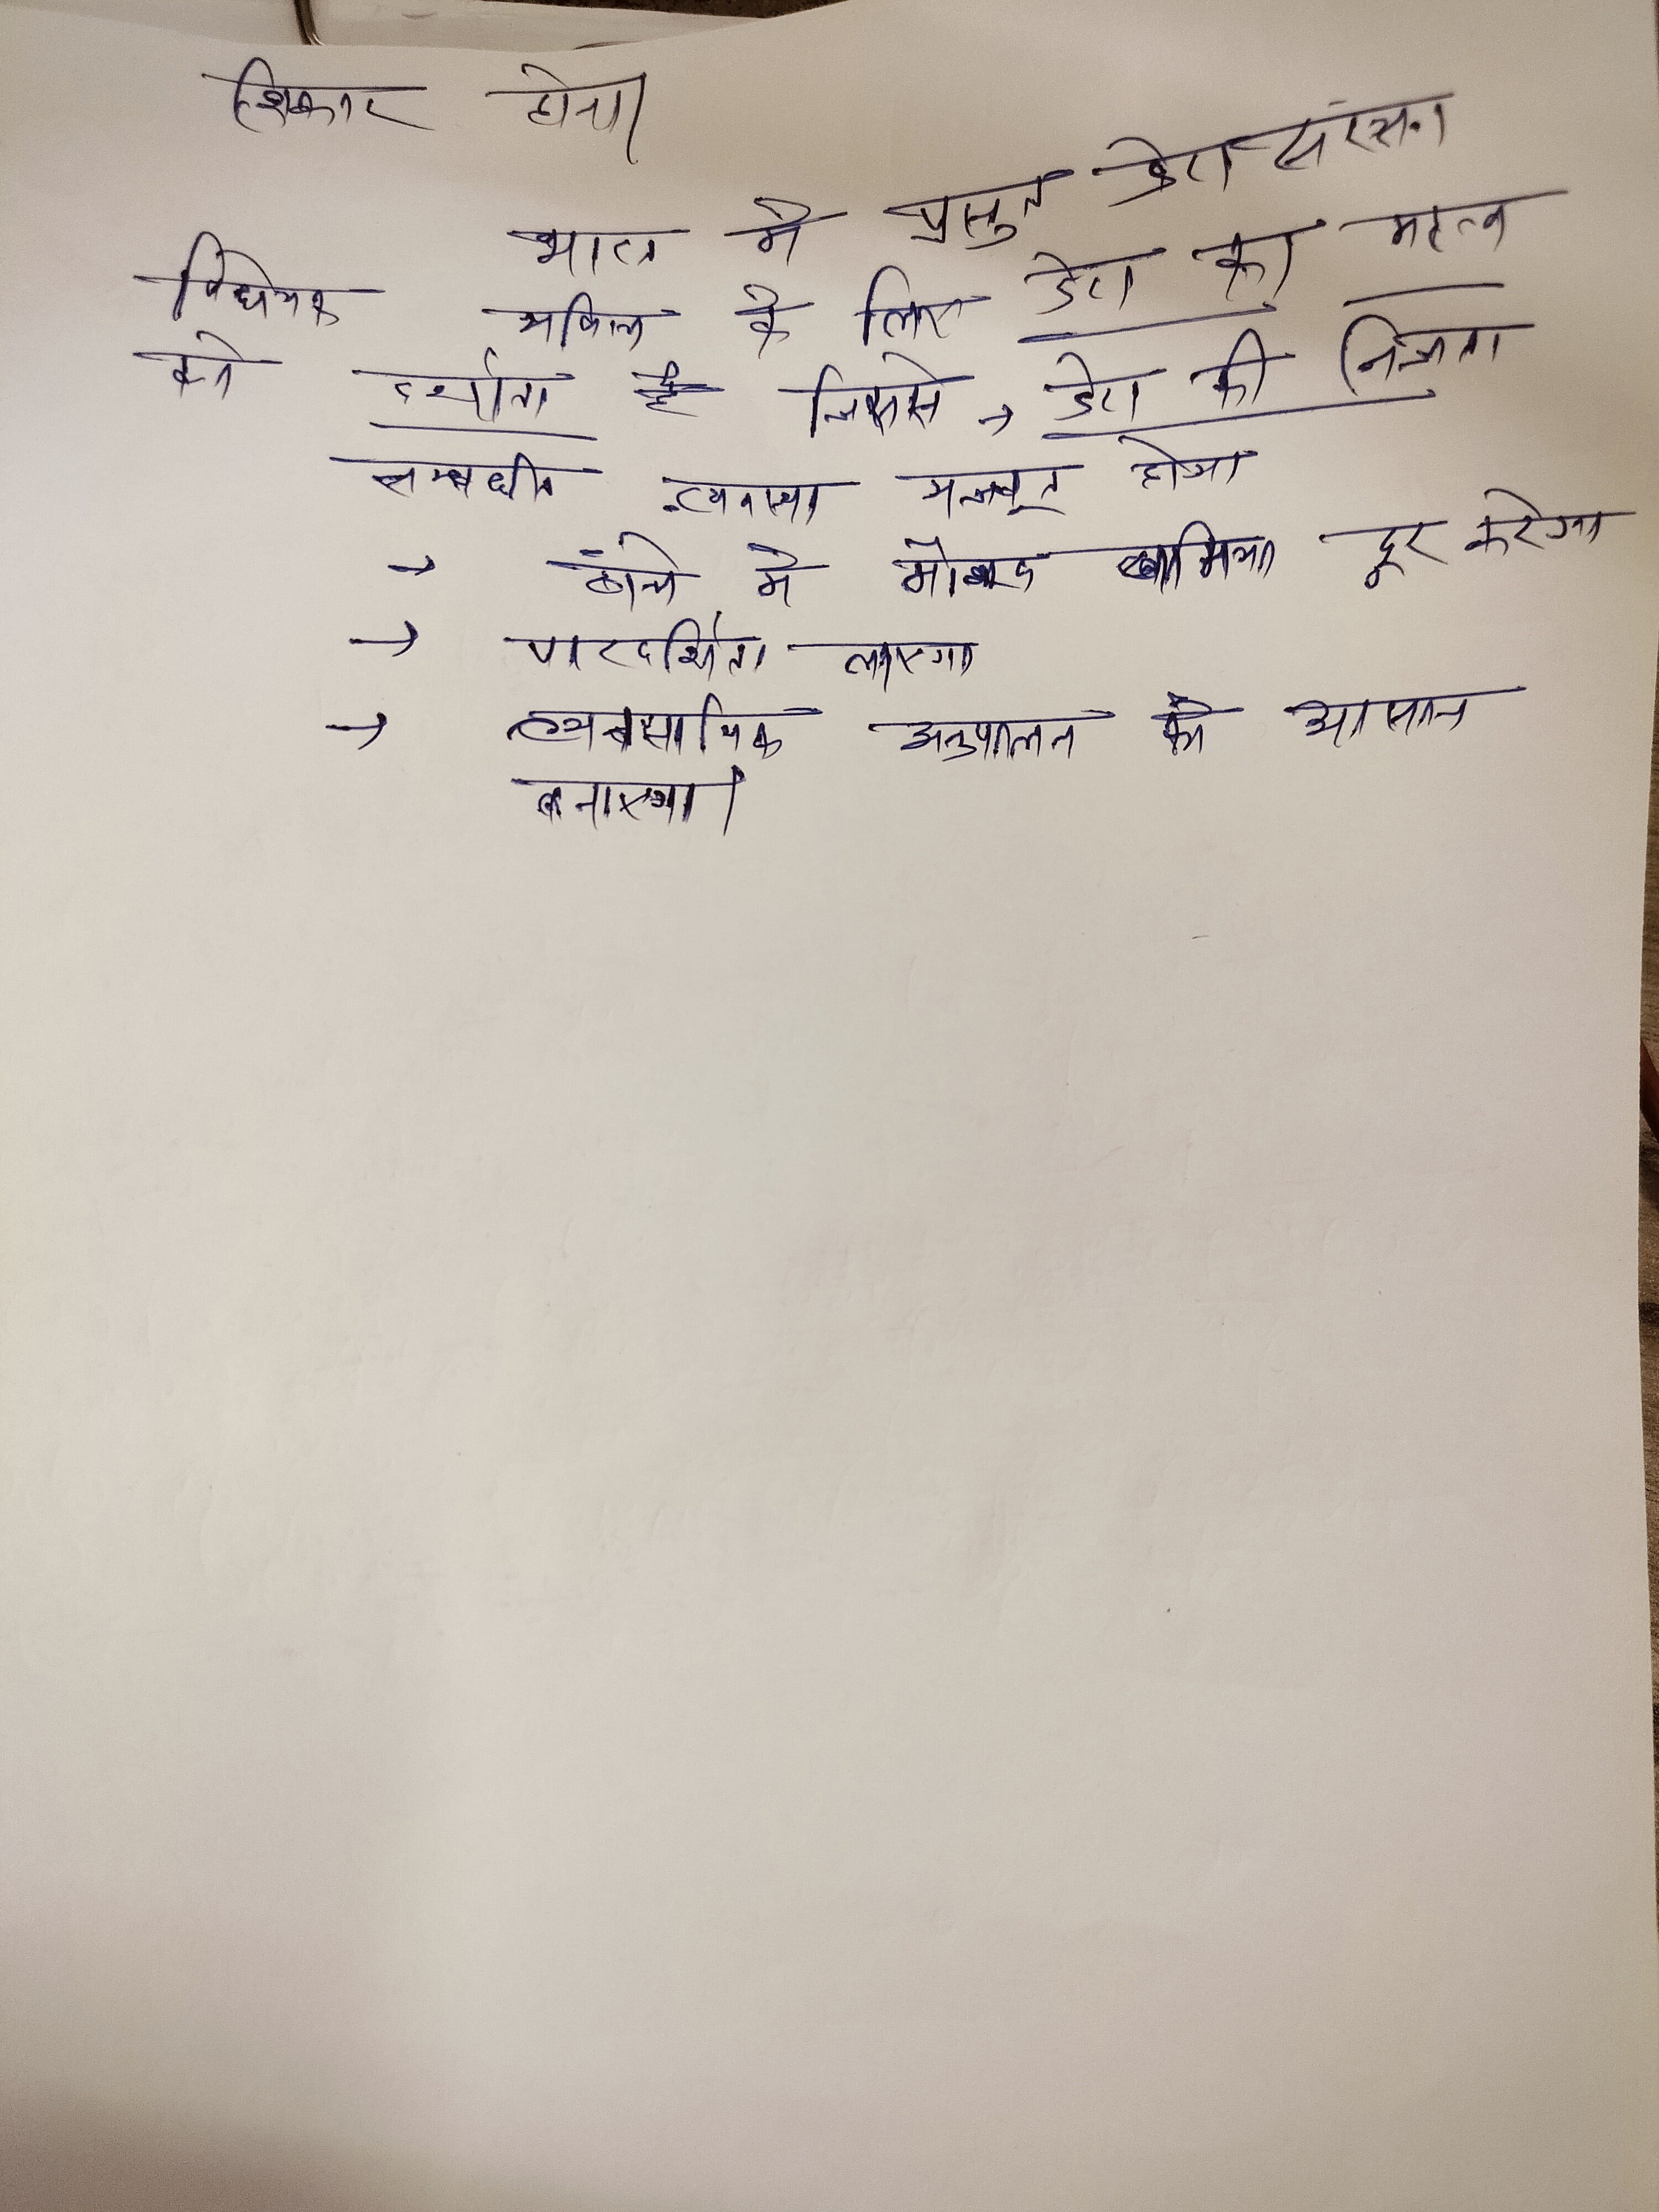 शिकार होना।
भारत में प्रस्तुत डेटा संरक्षण
विधेयक भविष्य के लिए डेटा का महत्व
को दर्शाता है जिससे → डेटा की निजता
सम्बधीत व्यवस्था मजबूत होगा
→ ढाँचे में मौजूद खामिया दूर करेगा
→ पारदर्शिता लाएगा
→ व्यवसायिक अनुपालन को आसान
बनाएगा।